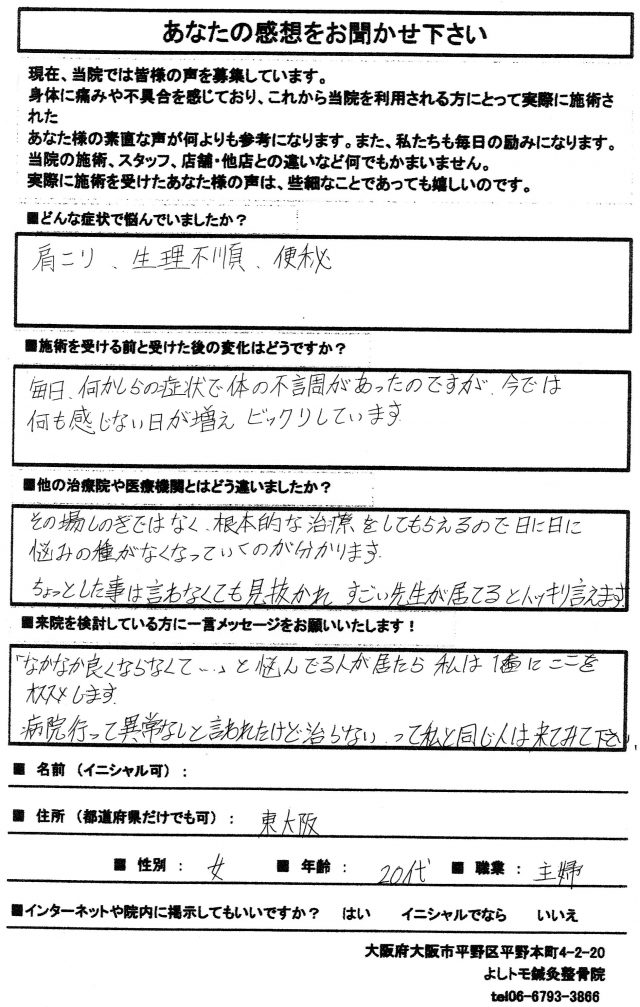 あなたの感想をお聞かせ下さい
現在、当院では皆様の声を募集しています。
身体に痛みや不具合を感じており、これから当院を利用される方にとって実際に施術さ
れた
あなた様の素直な声が何よりも参考になります。また、私たちも毎日の励みになります。
当院の施術、スタッフ、店舗・他店との違いなど何でもかまいません。
実際に施術を受けたあなた様の声は、些細なことであっても嬉しいのです。
■どんな症状で悩んでいましたか？
肩こり、生理不順、便秘
■施術を受ける前と受けた後の変化はどうですか？
毎日、何かしらの症状で体の不調があったのですが、今では
何も感じない日が増え ビックリしています
■他の治療院や医療機関とはどう違いましたか？
その場しのぎではなく、根本的な治療をしてもらえるので日に日に
悩みの種がなくなっていくのが分かります
ちょっとした事は言わなくても見抜かれ すごい先生が居てるとハッキリ言えます
■来院を検討している方に一言メッセージをお願いいたします！
「なかなか良くならなくて…」と悩んでる人が居たら 私は1番にここを
オススメします
病院行って異常なしと言われたけど治らない、って私と同じ人は来てみて下さい、
■ 名前（イニシャル可）：
■ 住所（都道府県だけでも可）： 東大阪
■ 性別： 女 ■ 年齢： 20代 ■ 職業： 主婦
■インターネットや院内に掲示してもいいですか？ はい イニシャルでなら いいえ
大阪府大阪市平野区平野本町4-2-20
よしトモ鍼灸整骨院
tel06-6793-3866